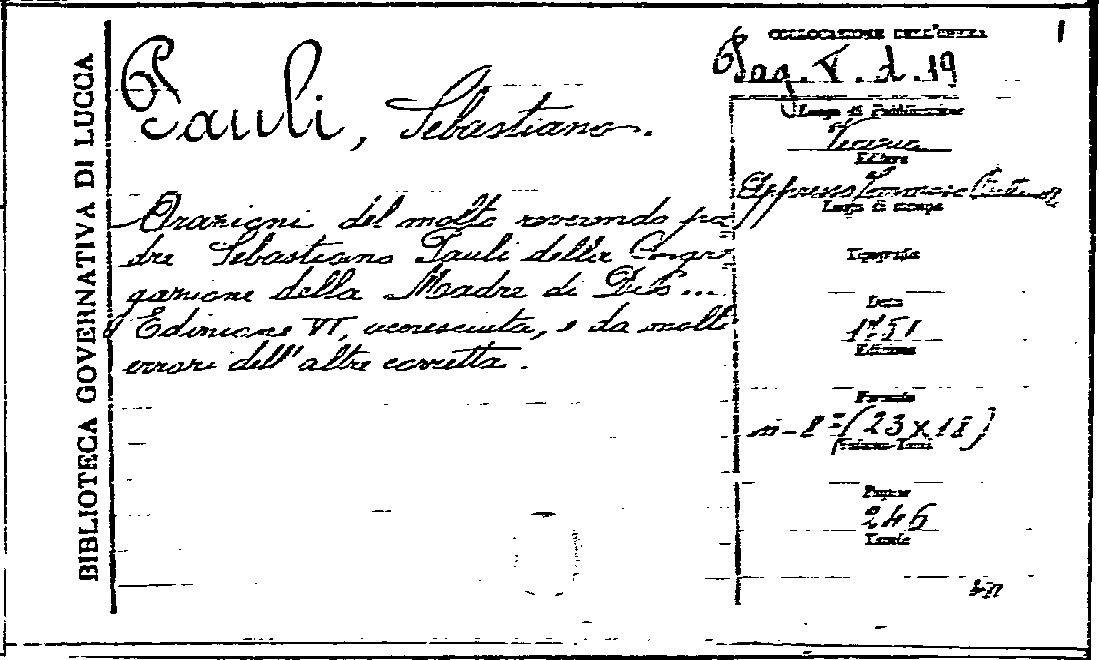 BIBLIOTECA GOVERNATIVA DI LUCCA
Pauli, Sebastiano.
Orazioni del molto reverendo pa
dre Sebastiano Pauli della Congre
gazione della Madre di Dio...
Edizione VI, accresciuta, e da molti
errori dell'altre corretta.
1
COLLOCAZIONE DELL'OPERA
Pag. V. d. 19
Luogo di Pubblicazione
Venezia
Editore
Appresso Tommaso
Luogo di stampa
Tipografia
Data
1751
Edizione
Formato
in-8º (23x18)
Volumi-Tomi
Pagine
246
Tavole